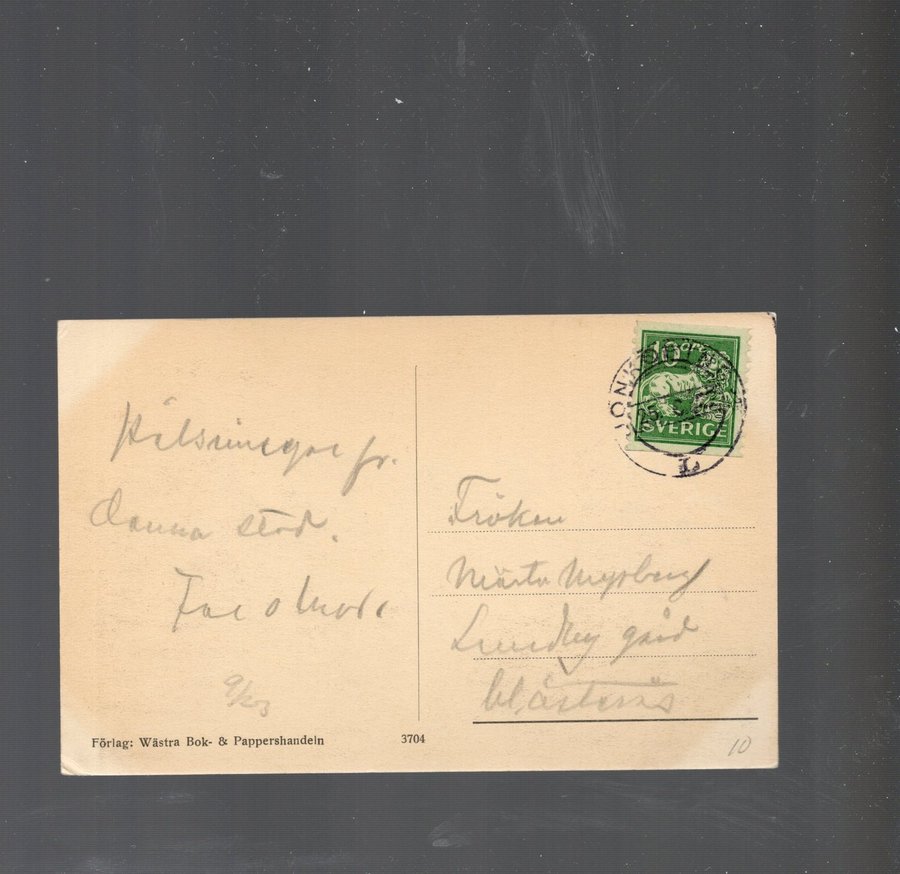 Hälsningar fr.
denna stad.
Far o Mor
Förlag: Wästra Bok- & Pappershandeln
3704
10 ÖRE
SVERIGE
JÖNKÖPING
Fröken
Märta
Lundby gård
Västerås
10